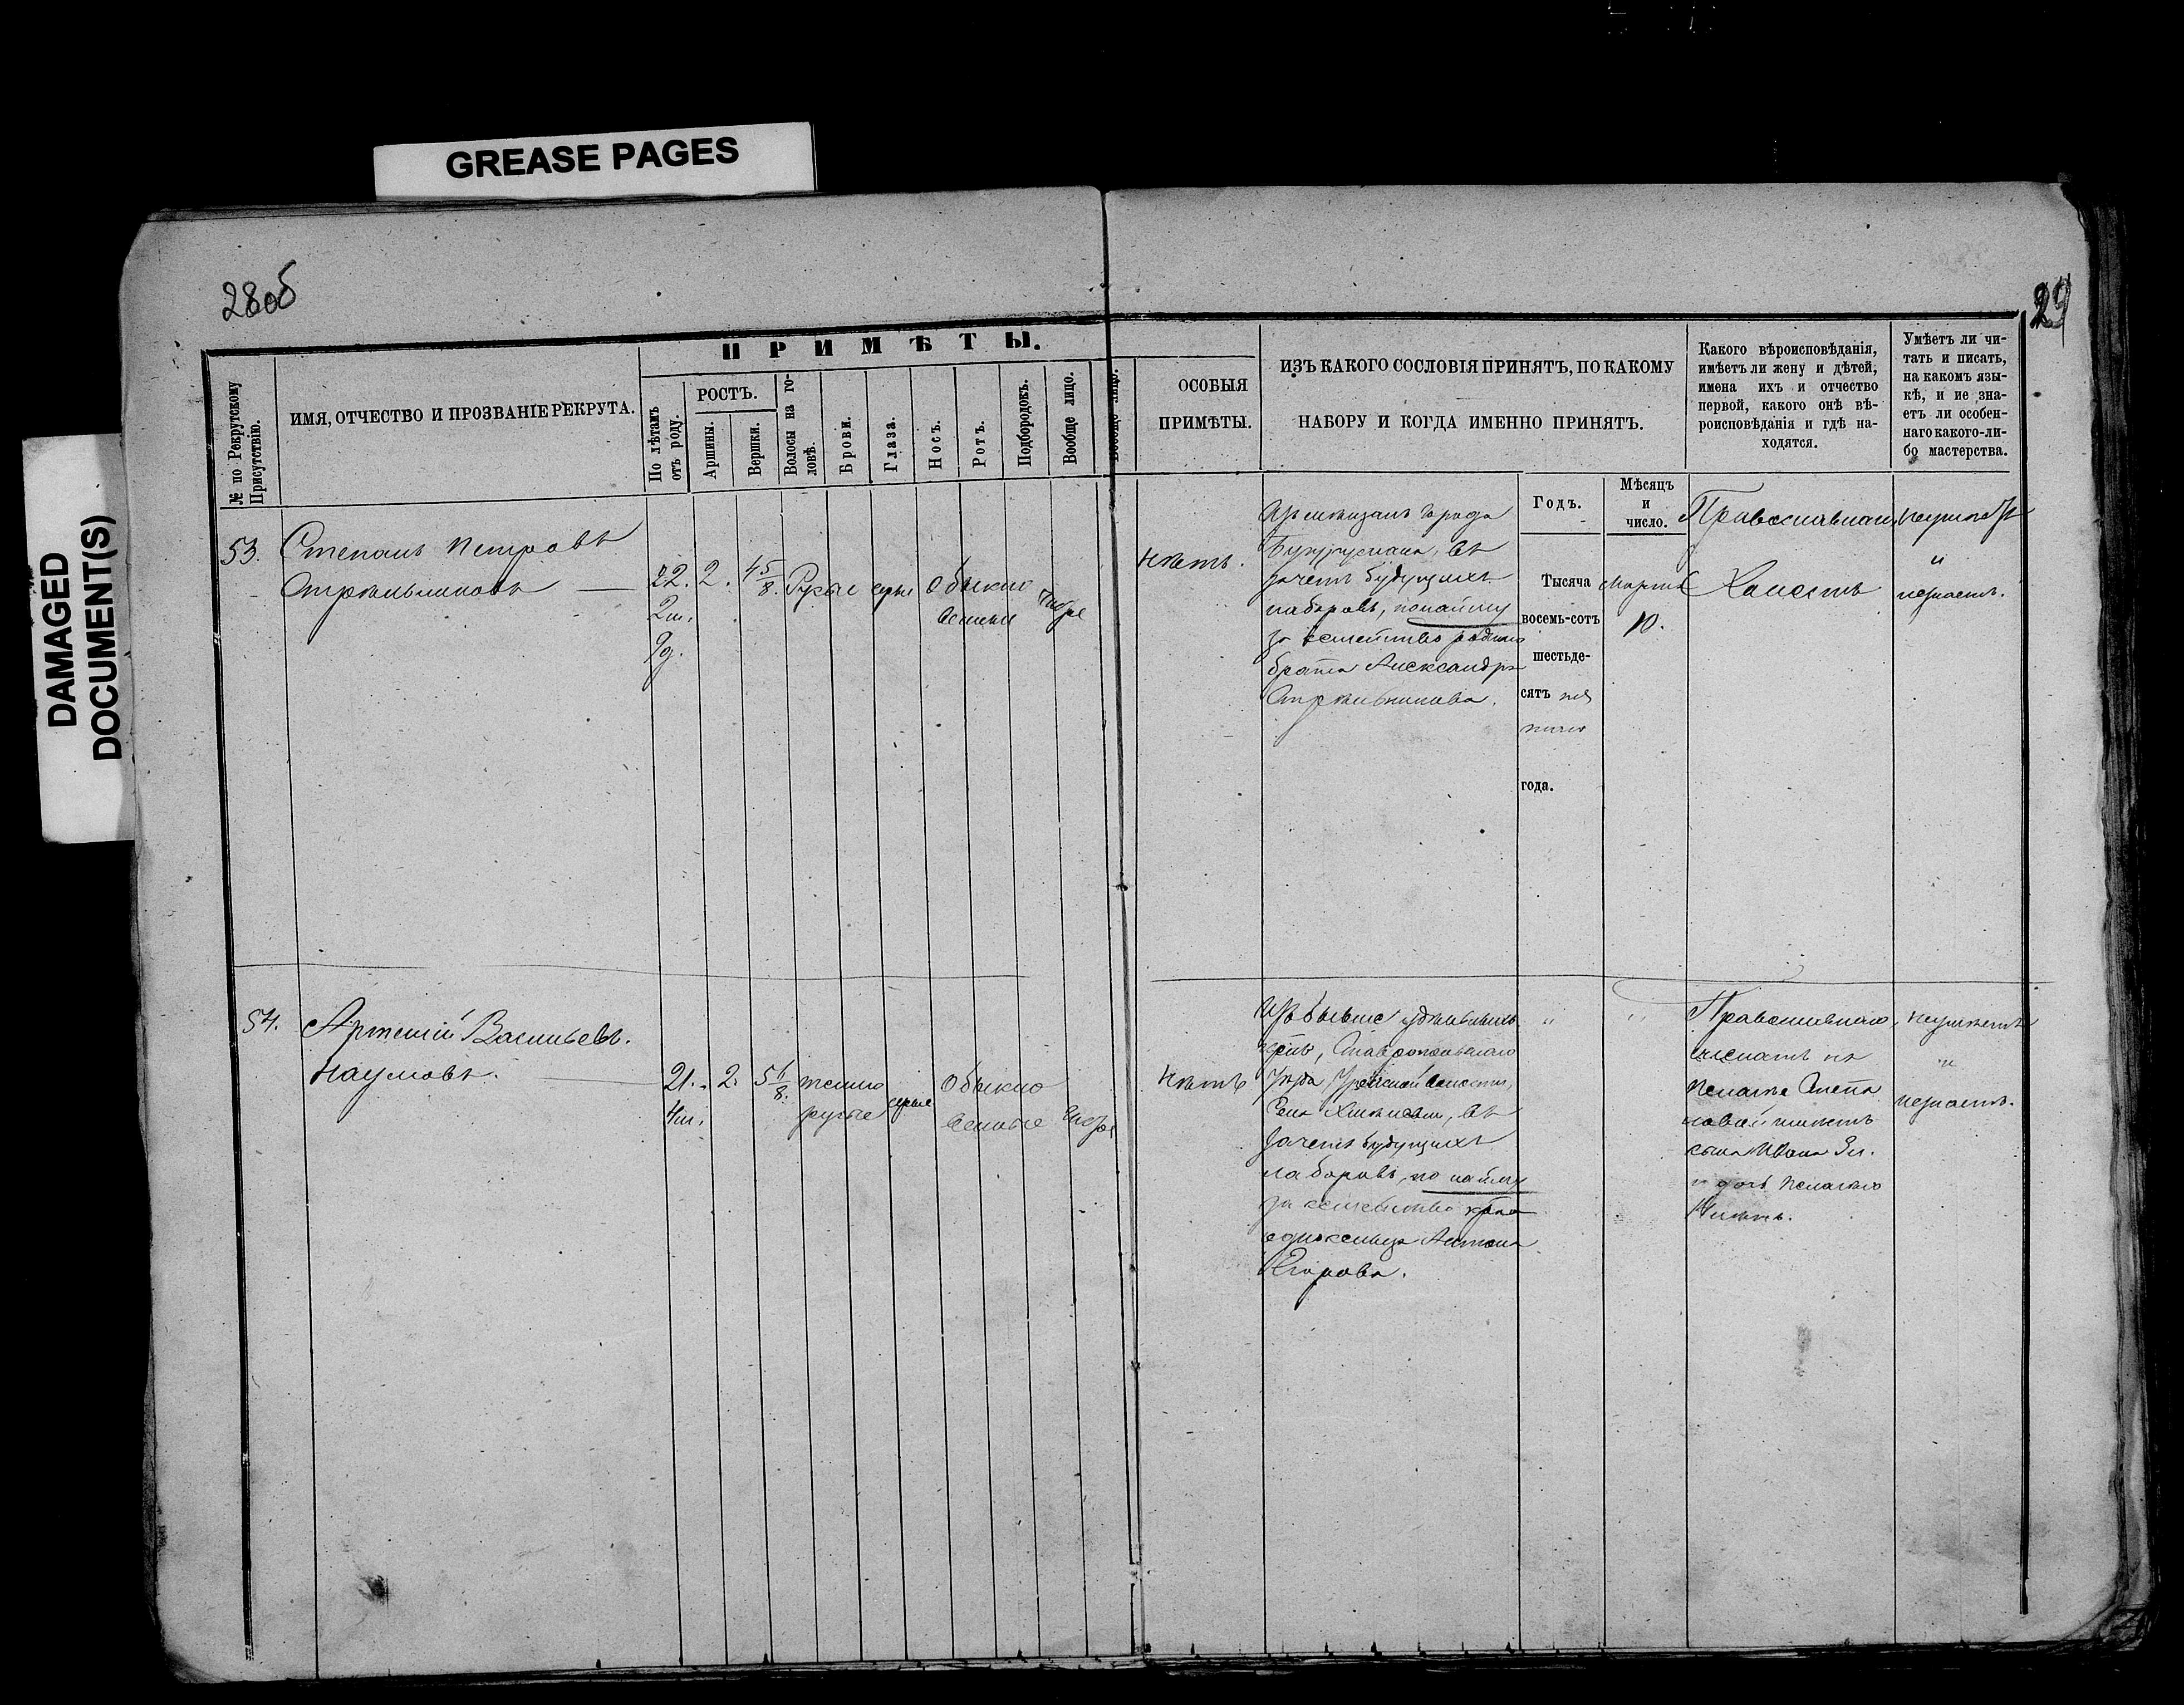 GREASE PAGES
DAMAGED
DOCUMENT(S)
28об
29
ПРИМѢТЫ.
№ по Рекрутскому
Присутствію.
ИМЯ, ОТЧЕСТВО И ПРОЗВАНІЕ РЕКРУТА.
По лѣтамъ
отъ роду.
РОСТЪ.
Аршины.
Вершки.
Волосы на го-
ловѣ.
Брови.
Глаза.
Носъ.
Ротъ.
Подбородокъ.
Вообще лицо.
Вообще лицо.
ОСОБЫЯ
ПРИМѢТЫ.
ИЗЪ КАКОГО СОСЛОВІЯ ПРИНЯТЪ, ПО КАКОМУ
НАБОРУ И КОГДА ИМЕННО ПРИНЯТЪ.
Какого вѣроисповѣданія,
имѣетъ ли жену и дѣтей,
имена ихъ и отчество
первой, какого онѣ вѣ-
роисповѣданія и гдѣ на-
ходятся.
Умѣетъ ли чи-
тать и писать,
на какомъ язы-
кѣ, и не зна-
етъ ли особен-
наго какого-ли-
бо мастерства.
Годъ.
Мѣсяцъ
и
число.
53.
Степанъ Петровъ
Стрѣльниковъ
22.
2м.
9д.
2.
4 5/8.
Русые
серые
Обыкно
венные
Нѣтъ.
Изъ мѣщанъ города
Бугуруслана, въ
зачетъ будущихъ
наборовъ, по найму
за семейство родного
брата Александра
Стрѣльникова.
Тысяча
восемь-сотъ
шестьде-
сятъ пя
таго
года.
Марта
10.
Православнаго
Холостъ
неумѣетъ
и
незнаетъ.
54.
Артемій Васильевъ.
Наумовъ.
21.
4м.
2.
5 1/8.
темно
русые
серые
Обыкно
венные
Нѣтъ
Изъ бывше удѣльныхъ
крест, Ставропольскаго
Уѣзда волости,
Села въ
зачетъ будущихъ
наборовъ, по найму
за семейство
односельца Антона
Егорова.
"
"
Православнаго,
женатъ на
Пелагѣе Степа
новой имѣетъ
сына Ивана 3л.
и дочь Пелагею
неумѣетъ
и
незнаетъ.